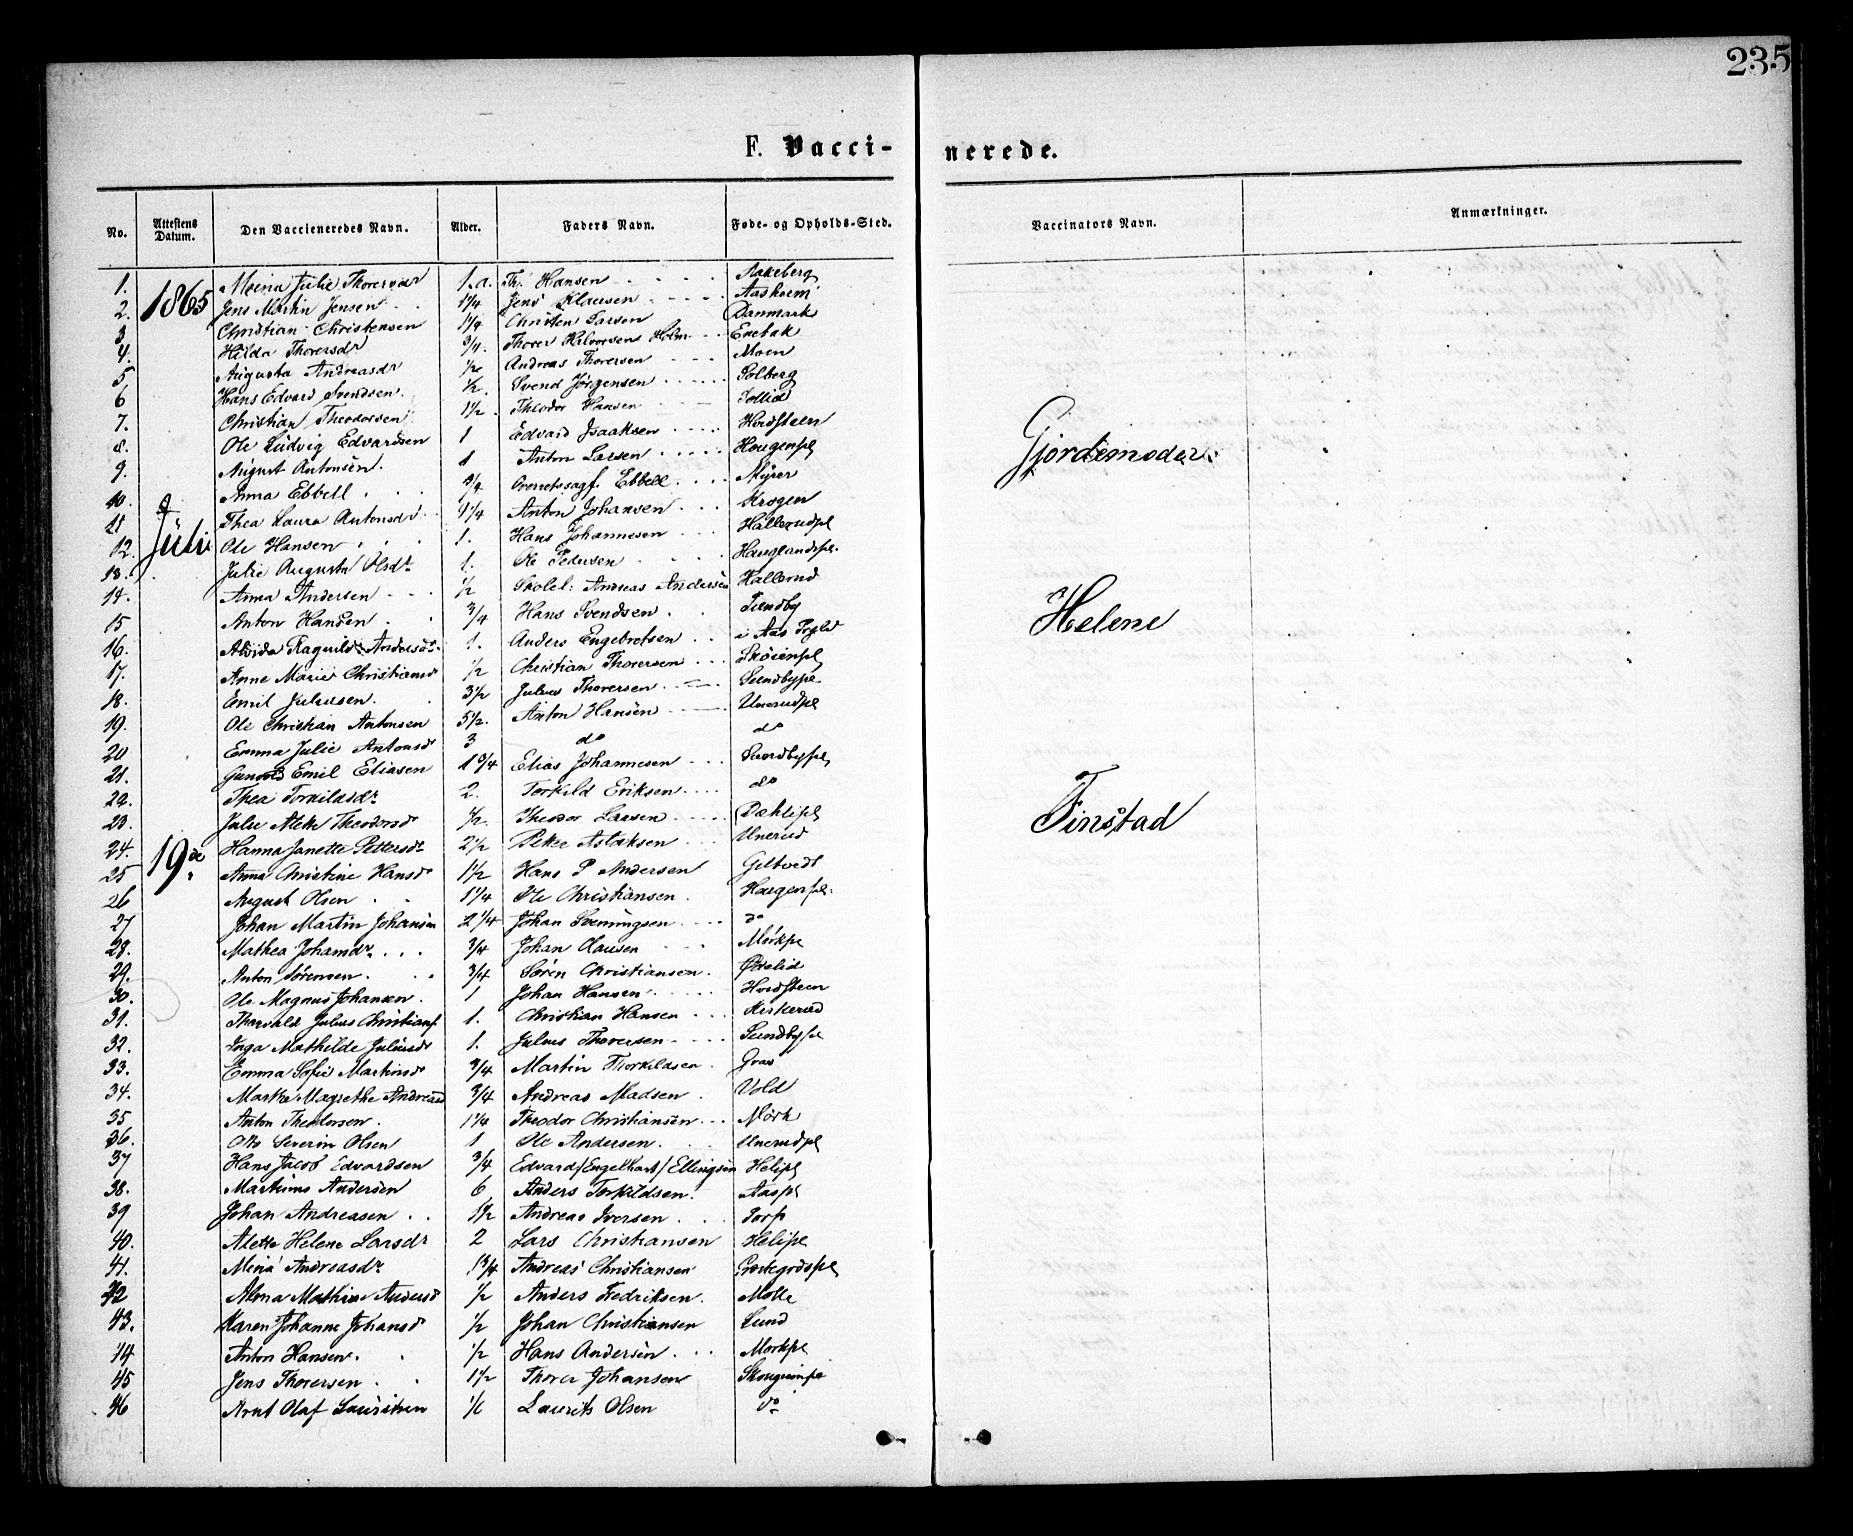 235
F. Vacci-nerede.
No. Attestens Datum. Den Vaccineredes Navn. Alder. Faders Navn. Føde- og Opholds-Sted. Vaccinators Navn. Anmærkninger.
1. Mina Julie Thoresdr 1.a. Th. Hansen Aakeberg
2. 1865 Jens Martin Jensen 1¼ Jens Klausen Aasheim
3 Christian Christensen 1¼ Christen Larsen Danmark
4. Hilda Thorersdr ¾. Thorer Halvorsens Holm Enebak
5 Augusta Andreasdr ½ Andreas Thorersen Moen
6 Hans Edvard Svendsen. ½. Svend Jørgensen Solberg
7. Christian Theodorsen 1½. Theodor Hansen Sollid
8. Ole Ludvig Edvardsen 1 Edvard Isaaksen Hvidsteen
9. August Antonsen. 1 Anton Larsen Hougenpl Gjordemoder
10. Anna Ebbell ¾ Overretssagf. Ebbell Myrer
11 d. Thea Laura Antonsdr 1¼ Anton Johansen Krogen
12. Juli Ole Hansen 1. Hans Johannesen Hallerudpl
13. Julie Augusta Olsdr 1. Ole Pedersen Hauglandspl.
14. Anna Andersen ½ Skolel: Andreas Andersen Hallerud
15 Anton Hansen ¾ Hans Svendsen Sundby Helene
16. Alvida Ragnild Andersdr 1. Anders Engebretsen i Aas Sogld
17. Anne Marie Christiansd ½ Christian Thorersen Skøienpl
18. Emil Juliussen. 3½ Julius Thorersen Sundbypl
19. Ole Christian Antonsen 5½. Anton Hansen Unerudpl
20 Emma Julie Antonsd 3 do do
21. Emil Eliasen 1¾ Elias Johannesen Sundbypl
22. Thea Torkildsdr 2. Torkild Eriksen do
23. Julie Alette Theodorsd ½. Theodor Larsen Dæhlipl Finstad
24. 19de Hanna Janette Pettersdr 2½ Peter Aslaksen Unerud
25 Anna Christine Hansdr 1½ Hans P Andersen Geltvedt
26 August Olsen 1¼ Ole Christiansen. Haugenpl.
27 Johan Martin Johansen 2¼ Johan Svenningsen do
28. Mathea Johansdr ¾ Johan Clausen Mørkpl
29. Anton Sørensen. ¾ Søren Christiansen. Østelid
30. Ole Magnus Johansen. 1 Johan Hansen Hvidsteen
31. Thorvald Julius Christiansen 1. Christian Hansen Kirkerud
32. Inga Mathilde Juliusdr 1. Julius Thorersen Sundbypl
33. Emma Sofie Martinsdr ¾ Martin Thorkildsen. Grav
34. Marthe Magrethe Andreasd ¾ Andreas Madsen. Vold
35 Anton Theodorsen. 1¼ Theodor Christiansen Mørk
36. Otto Severin Olsen 1 Ole Andersen. Unerudpl
37 Hans Jacob Edvardsen ¾ Edvard/Engelhart/Ellingsen Helipl
38. Martinius Andersen 6 Anders Torkildsen. Aaspl
39 Johan Andreasen 1½ Andreas Iversen Torp
40. Alette Helene Larsdr 2 Lars Christiansen Helipl
41. Mina Andreasdr 1¾ Andreas Christiansen Præstegrdspl
42 Alma Mathine Andersd ½ Anders Fredriksen. Molle
43. Karen Johanne Johansd ½ Johan Christiansen Lund
44 Anton Hansen. ½ Hans Andersen Morkpl
45 Jens Thorersen 1½ Thorer Johansen
46 Arnt Olaf Lauritsen Laurits Olsen do